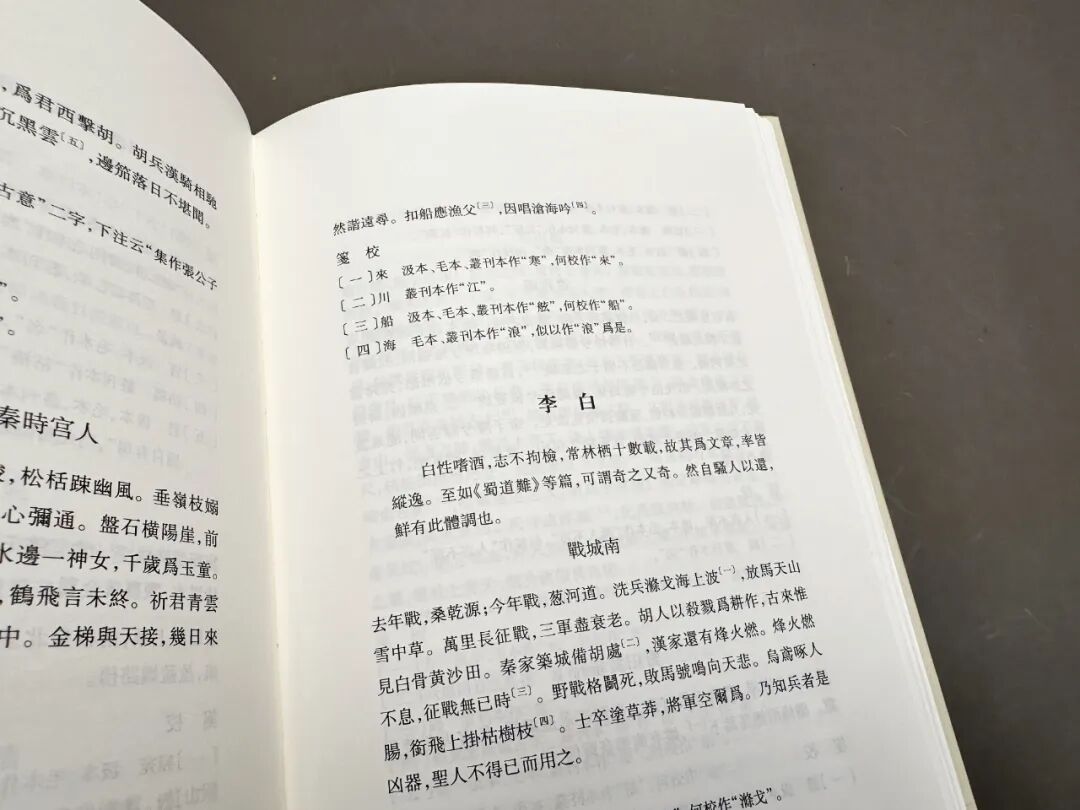 ，爲君西擊胡。胡兵漢騎相馳
沉黑雲〔五〕，邊笳落日不堪聞。
古意”二字，下注云“集作張公子
”。
”。
秦時宮人
，松栝踈幽風。垂嶺枝嫋
心彌通。盤石橫陽崖，前
水邊一神女，千歲爲玉童。
，鶴飛言未終。祈君青雲
中。金梯與天接，幾日來
然諧遠尋。扣船應漁父〔三〕，因唱滄海吟〔四〕。
箋 校
〔一〕來 汲本、毛本、叢刊本作“寒”，何校作“來”。
〔二〕川 叢刊本作“江”。
〔三〕船 汲本、毛本、叢刊本作“舷”，何校作“船”。
〔四〕海 毛本、叢刊本作“浪”，似以作“浪”爲是。
李 白
白性嗜酒，志不拘檢，常林栖十數載，故其爲文章，率皆
縱逸。至如《蜀道難》等篇，可謂奇之又奇。然自騷人以還，
鮮有此體調也。
戰城南
去年戰，桑乾源；今年戰，葱河道。洗兵滌戈海上波〔一〕，放馬天山
雪中草。萬里長征戰，三軍盡衰老。胡人以殺戮爲耕作，古來惟
見白骨黃沙田。秦家築城備胡處〔二〕，漢家還有烽火燃。烽火燃
不息，征戰無已時〔三〕。野戰格鬭死，敗馬號鳴向天悲。烏鳶啄人
腸，銜飛上掛枯樹枝〔四〕。士卒塗草莽，將軍空爾爲。乃知兵者是
凶器，聖人不得已而用之。
何校作“滌戈”。